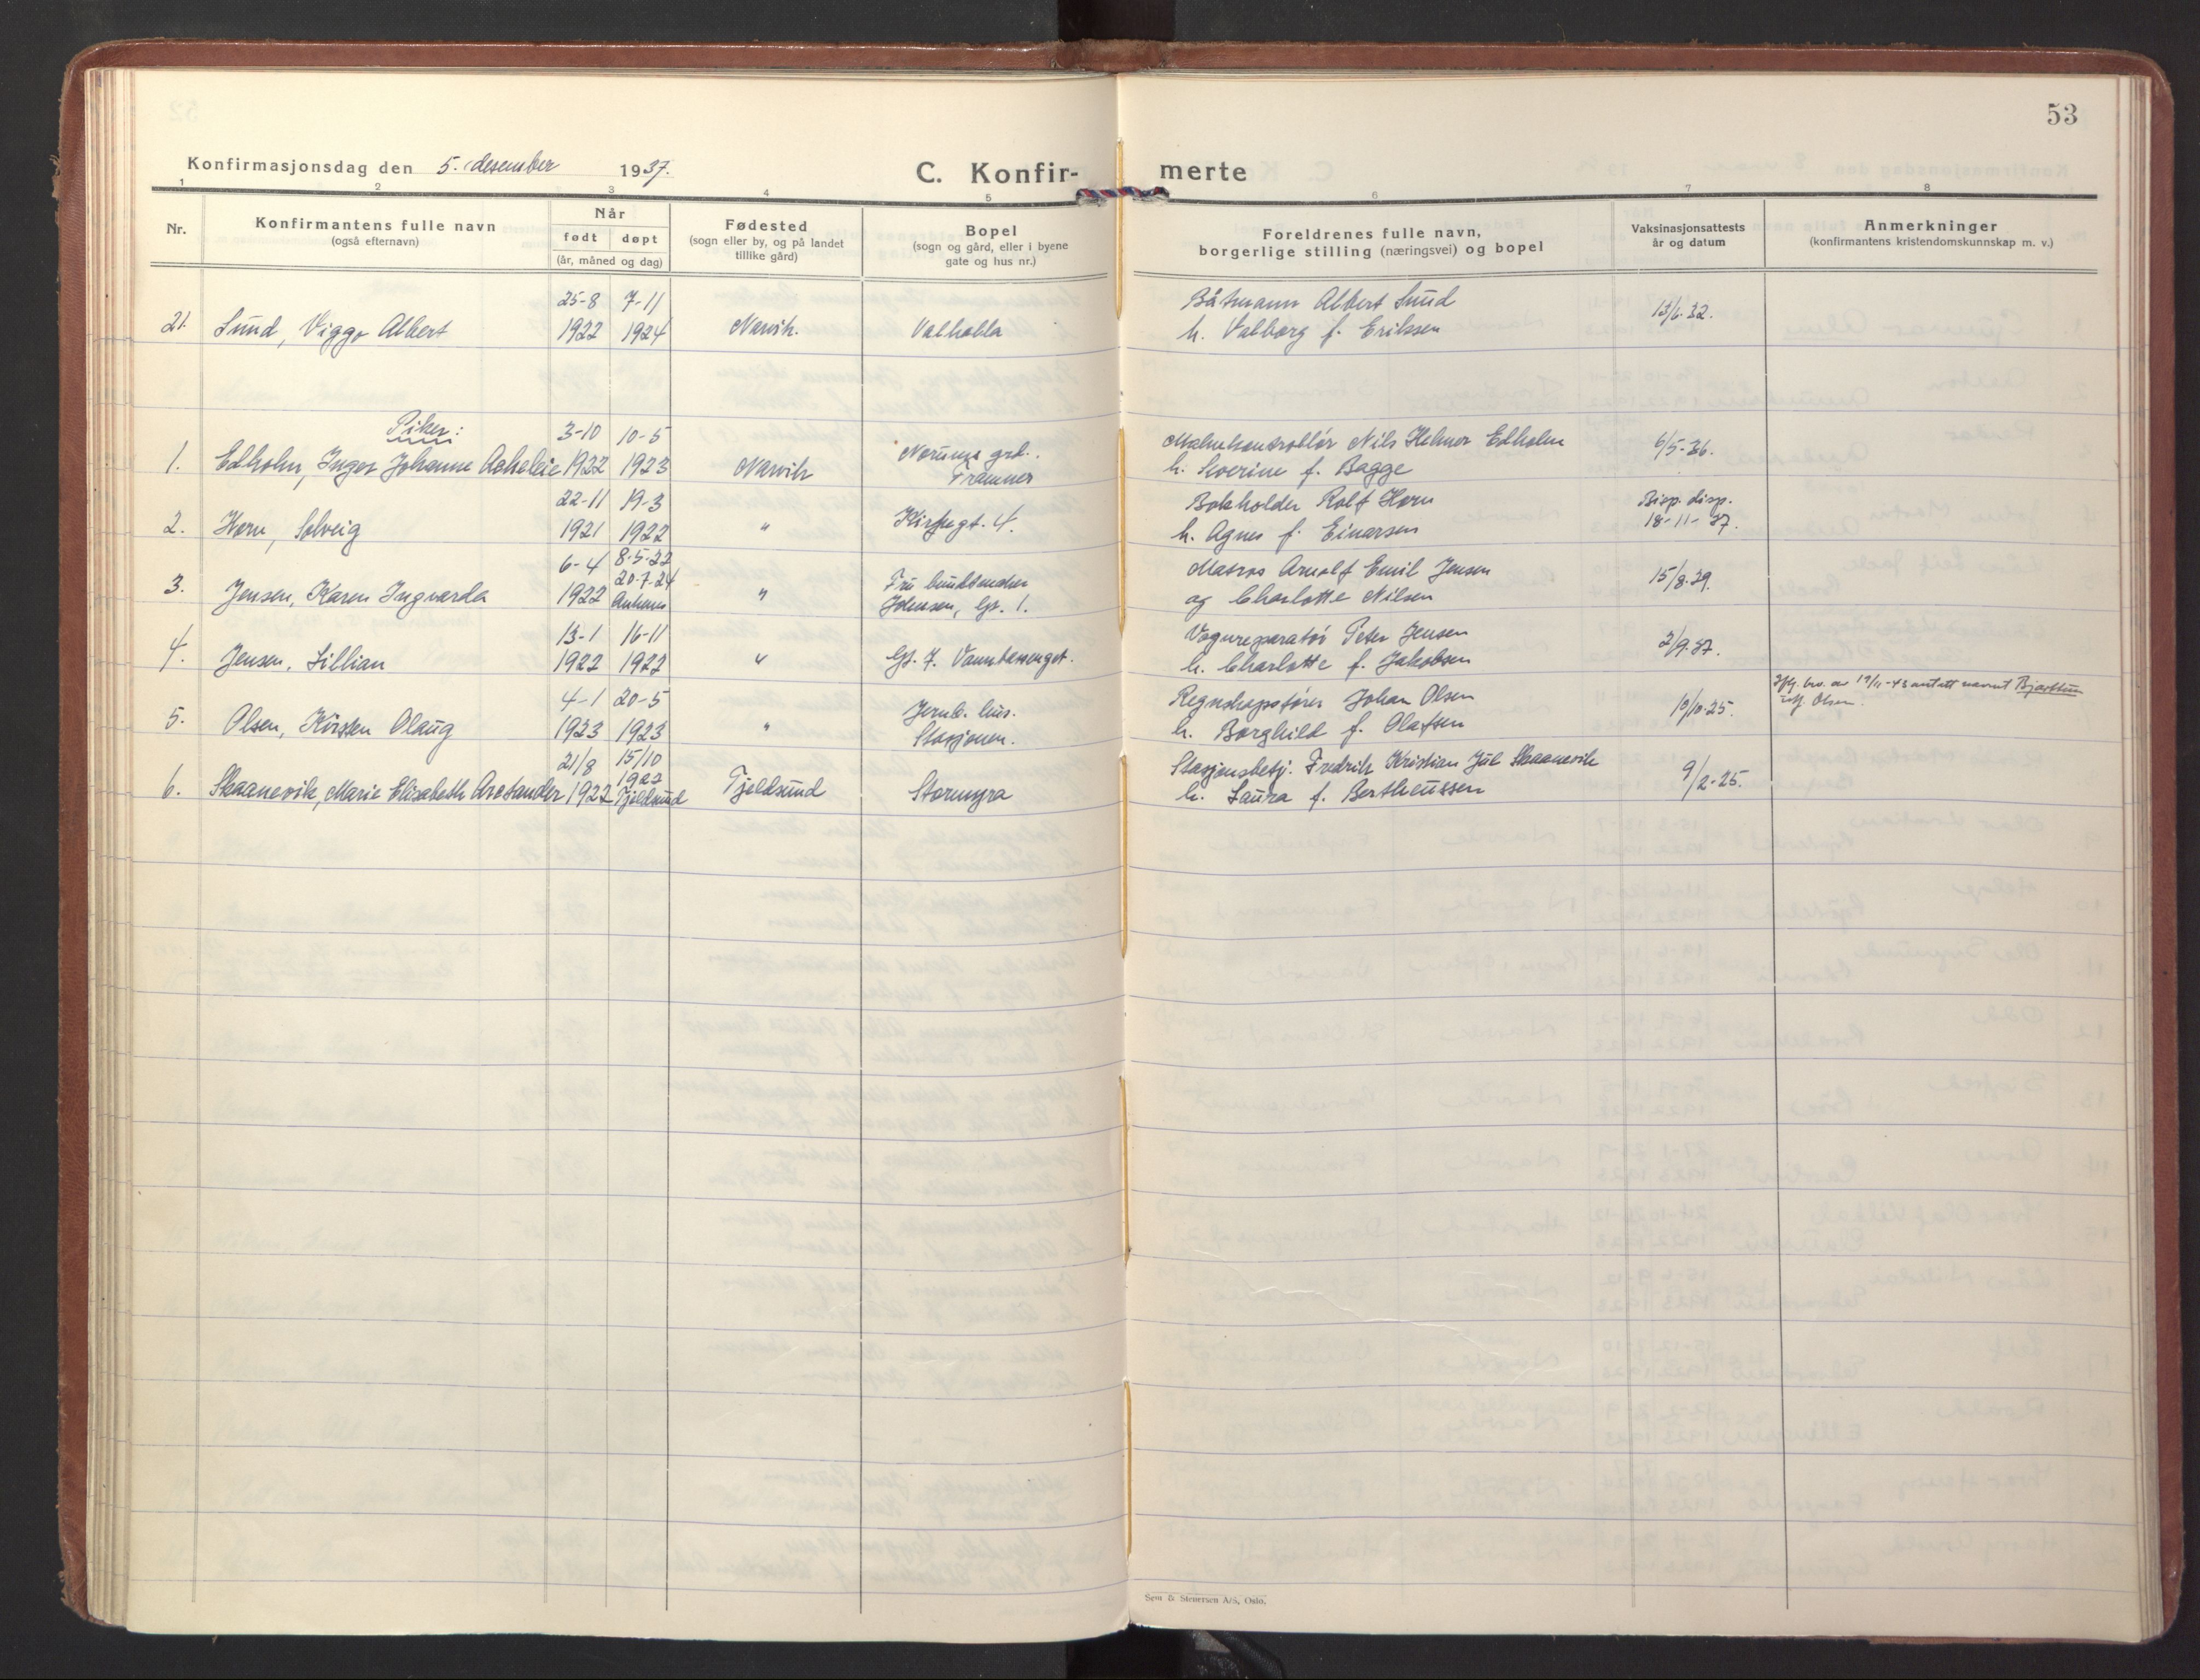 53
Konfirmasjonsdag den 5. desember 1937.
C. Konfir- merte
1 2 3 4 5 6 7 8
Nr.
Konfirmantens fulle navn
(også efternavn)
Når
født døpt
(år, måned og dag)
Fødested
(sogn eller by, og på landet
tillike gård)
Bopel
(sogn og gård, eller i byene
gate og hus nr.)
Foreldrenes fulle navn,
borgerlige stilling (næringsvei) og bopel
Vaksinasjonsattests
år og datum
Anmerkninger
(konfirmantens kristendomskunnskap m. v.)
25-8 7-11 Båtmann Albert Sund
21. Sund, Viggo Albert 1922 1924 Narvik. Valhalla h. Valborg f. Eriksen 13/6-32.
Piker:
3-10 10-5 Norums grd. Malmkontrollør Nils Helmer Edholm 6/5-36.
1. Edholm, Inger Johanne Aakeleie 1922 1923 Narvik Framnes h. Severine f. Bagge
22-11 19-3 Bokholder Rolf Horn Bisp. disp.
2. Horn, Solveig 1921 1922 " Kirkegt. 4. h. Agnes f. Einarsen 18-11-37.
6-4 8-5-22
20-7-24 Fru Matros Arnolf Emil Jensen 15/8-29.
3. Jensen, Karen Ingvarda 1922 Ankenes " Johnsen, Gt. 1. og Charlotte Nilsen
13-1 16-11 Vognreparatør Peter Jensen
4. Jensen, Lillian 1922 1922 " Gt. 7. Vannbassenget. h. Charlotte f. Jakobsen 2/9-37.
4-1 20-5 Jernb. hus. Regnskapsfører Johan Olsen Ifg. bev. av 19/11-43 antatt navnet Bjarttun
5. Olsen, Kirsten Olaug 1923 1923 " Stasjonen. h. Borghild f. Olafsen 10/10-25. istf. Olsen.
21/8 15/10 Stasjonsbetj. Fredrik Kristian Jul Skaanevik
1922
6. Skaanevik, Marie Elisabeth Arctander 1922 Tjeldsund Tjeldsund Stormyra h. Laura f. Bertheussen 9/2-25.
Sem & Stenersen A/S, Oslo.